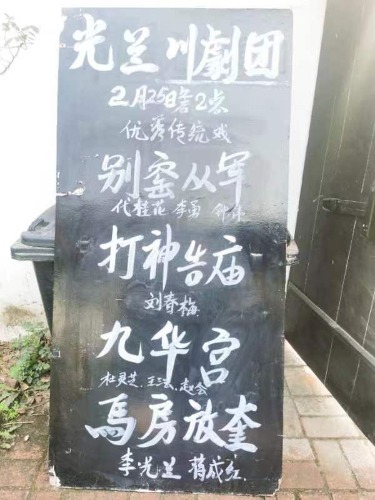 光兰川劇团
2月25日 2点
优秀传统戏
别窑从军
代桂花 李勇
打神告庙
刘春梅
九华宫
杜灵芝.王
馬房放奎
李光兰 蒋成红